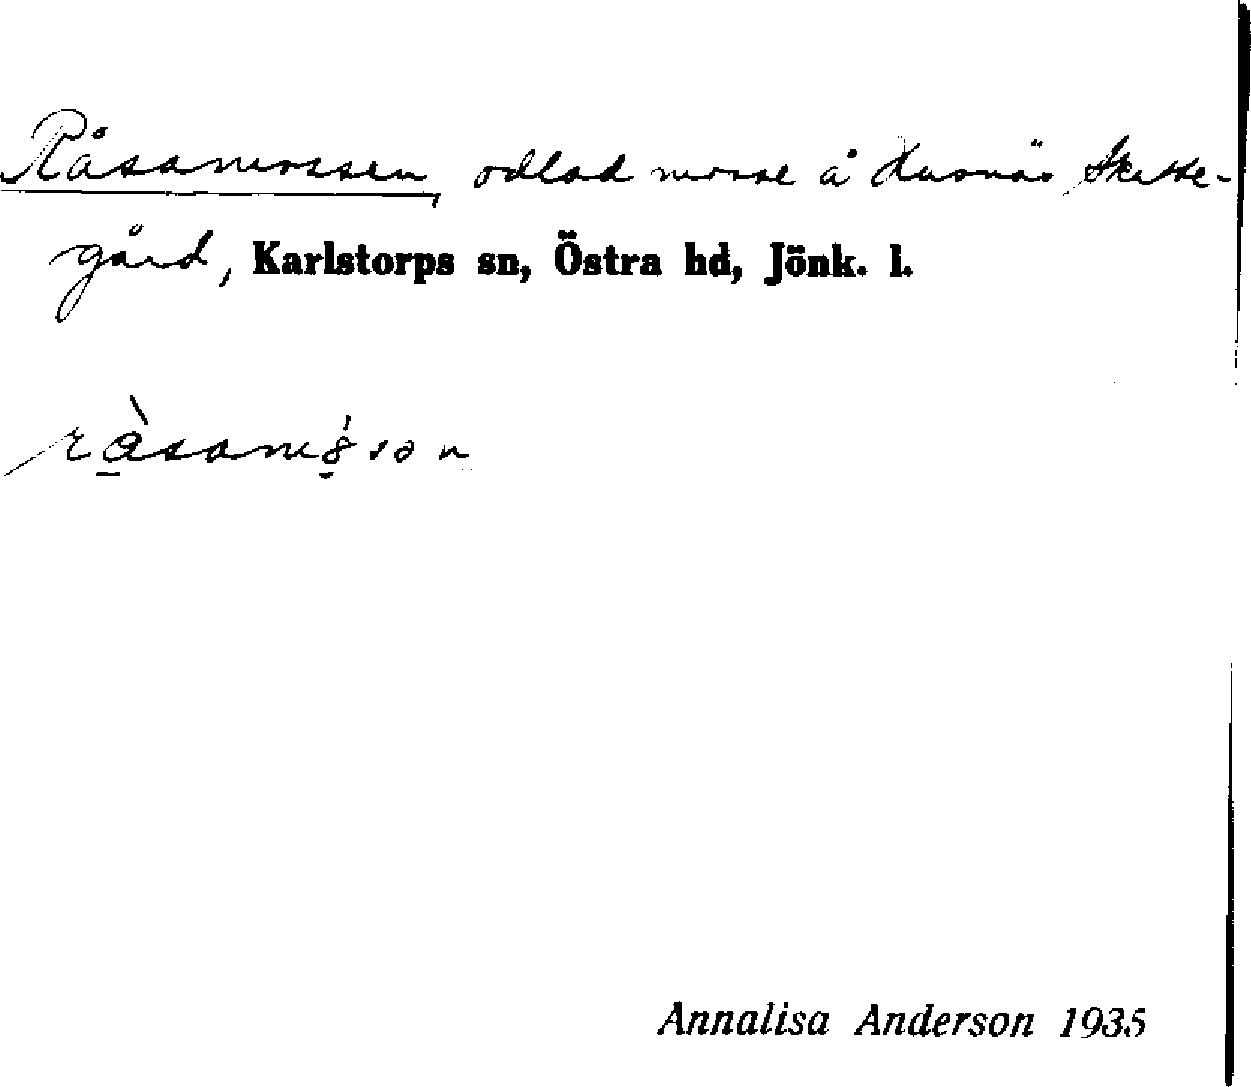 Råsamossen, odlad mosse å Kusnäs Skatte-
gård, Karlstorps sn, Östra hd, Jönk. l.
Annalisa Anderson 1935